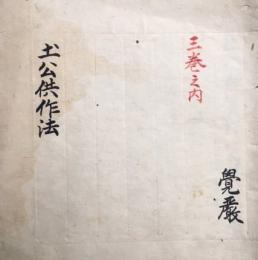 三巻之内
土公供作法
覺嚴